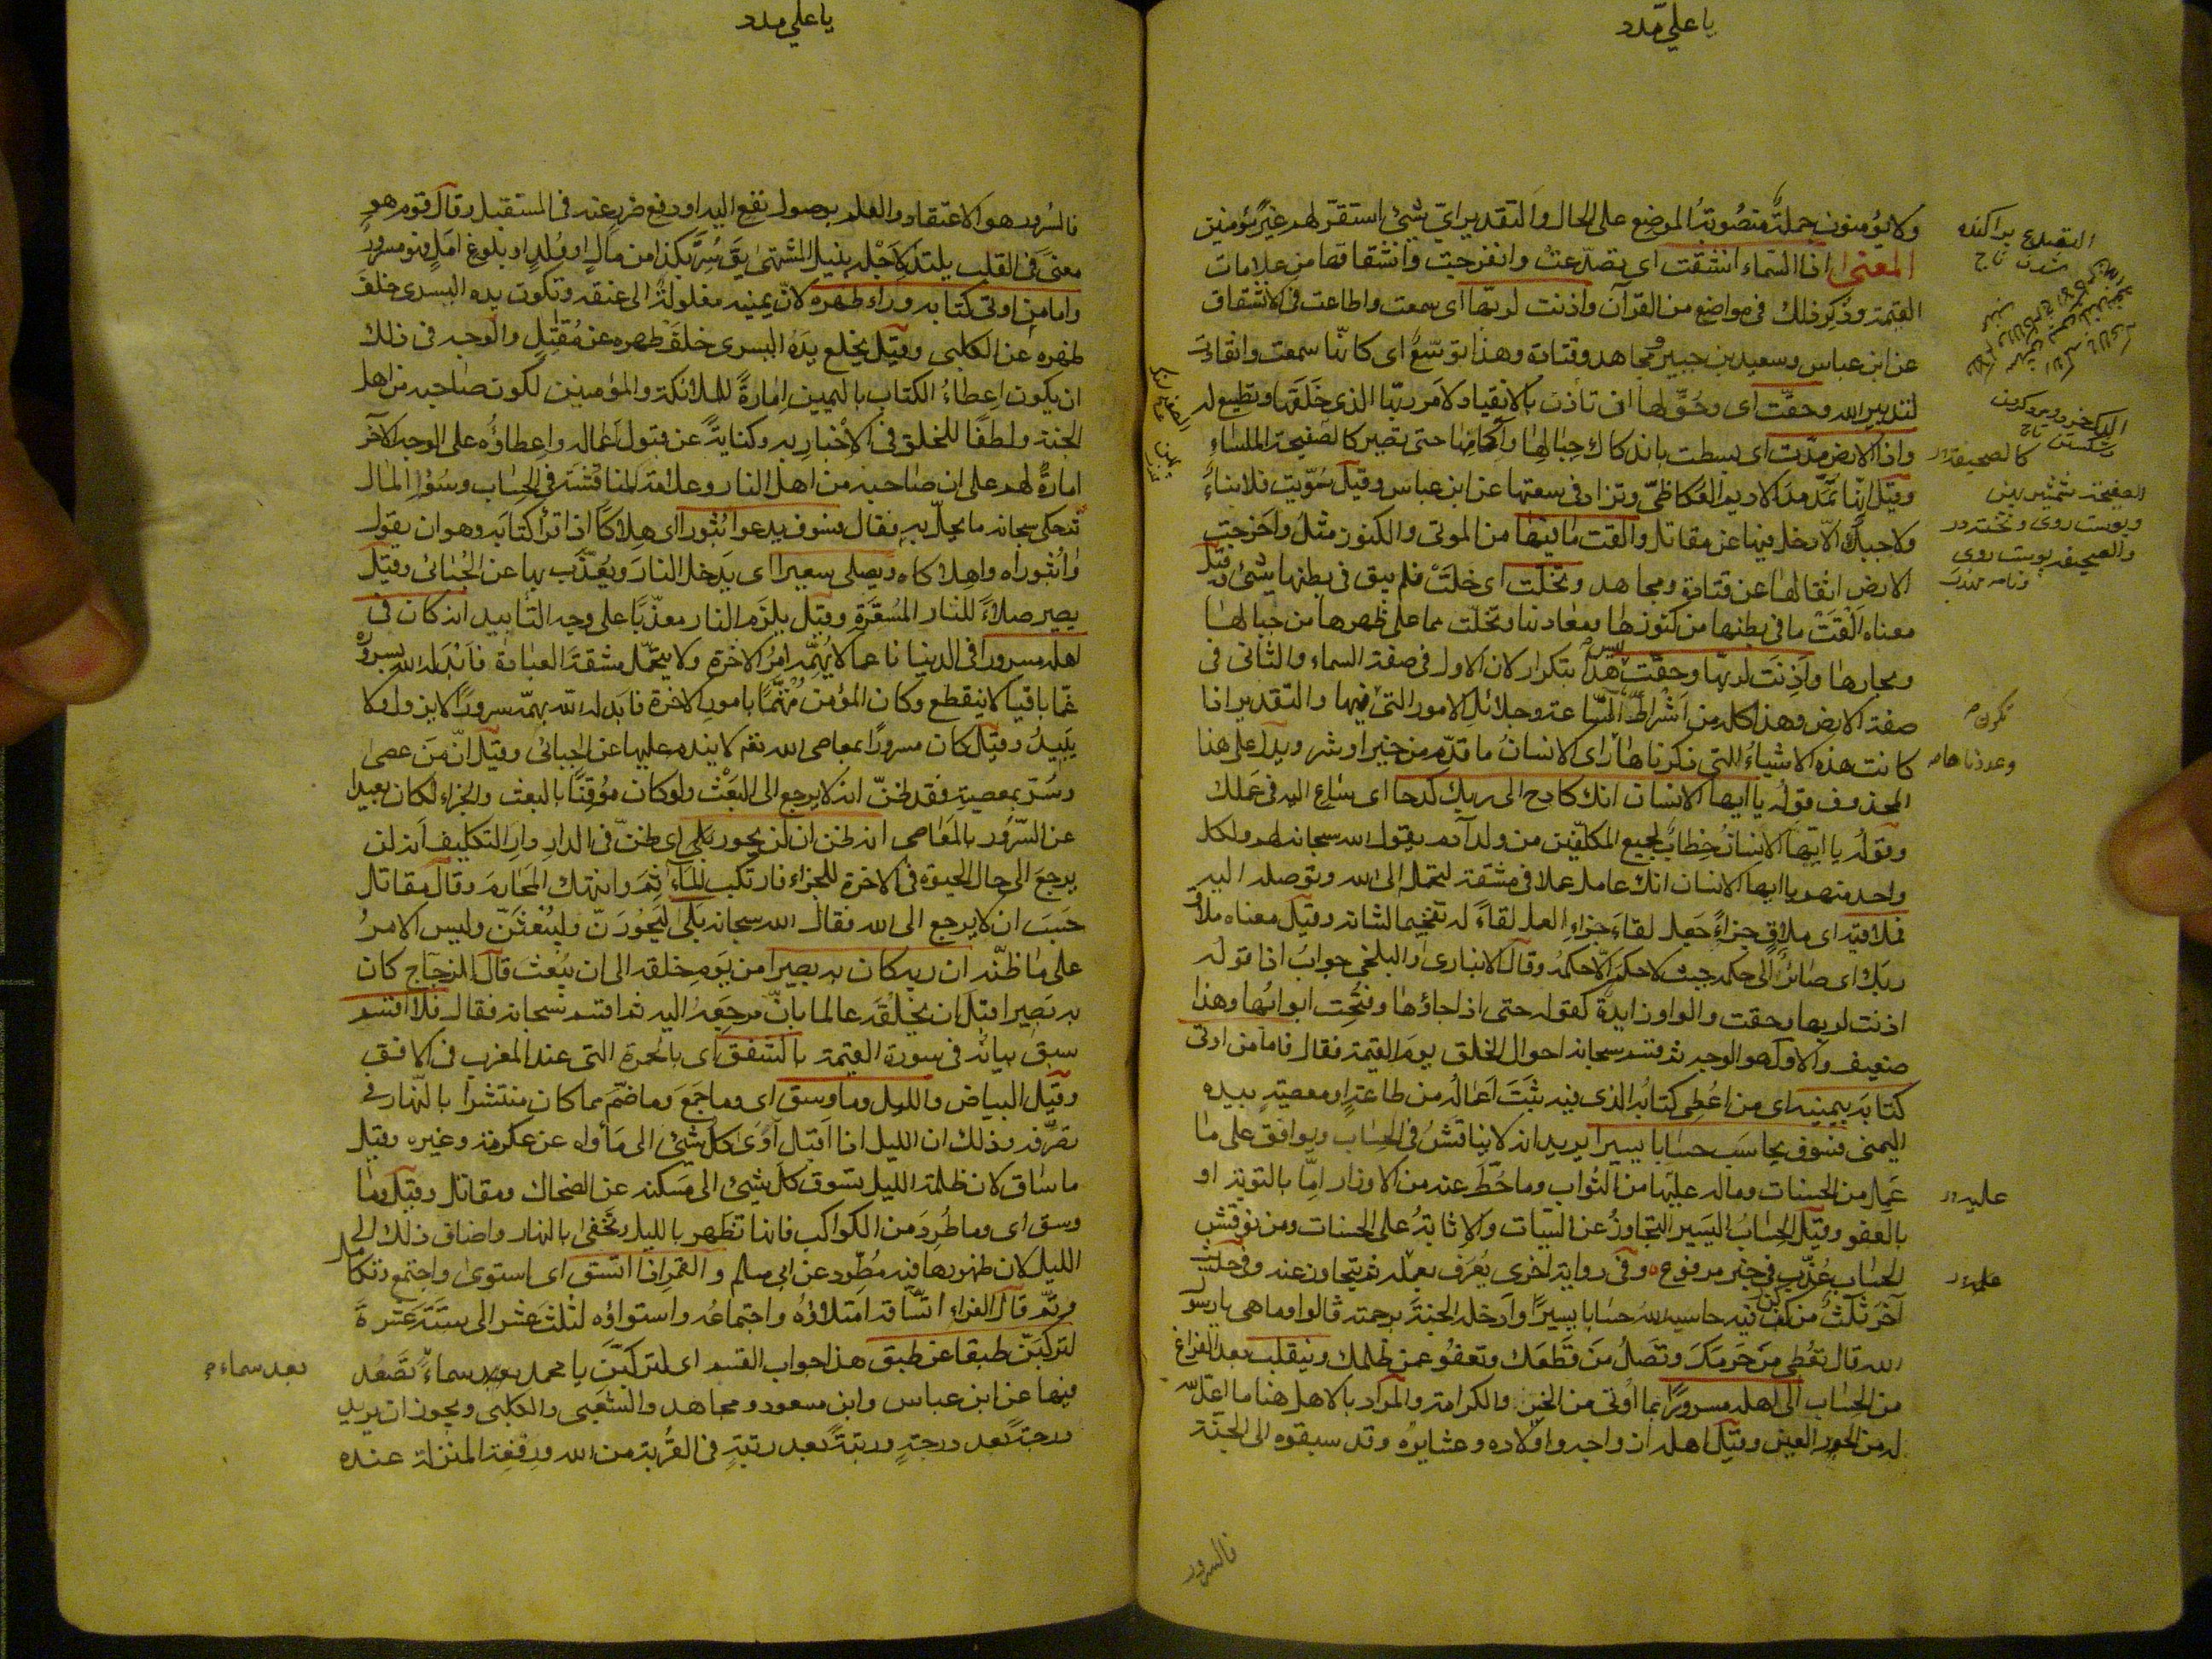 يا علي مدد
ولا يؤمنون جملة منصوبة الموضع على الحال والتقدير اي شيئ استقر لهم غير مؤمنين
المعنى اذا السماء انشقت اى تصدّعت وانفرجت وانشقاقها من علامات
القيمة وذكر ذلك فى مواضع من القرآن واذنت لربها اى سمعت واطاعت فى الانشقاق
عن ابن عباس وسعيد بن جبير ومجاهد وقتادة وهذا توسّع اى كانّها سمعت وانقادت
لتدبير الله وحقت اى وحُقّ لها ان تأذن بالانقياد لامر ربّها الذى خلقها وتطيع له
واذا الارض مدّت اى بسطت باندكاك جبالها وآكامها حتى تصير كالصفيحة الملساء
وقيل انّها تمدّ مدّ الاديم العكاظىّ وتزاد فى سعتها عن ابن عباس وقيل سُوّيت فلا بناءَ
ولا جبلَ الاّ دخل فيها عن مقاتل والقت ما فيها من الموتى والكنوز مثل واخرجت
الارض اثقالها عن قتادة ومجاهد وتخلّت اى خلَتْ فلم يبق فى بطنها شيئ وقيل
معناه القَتْ ما فى بطنها من كنوزها ومعادنها وتخلّت مما على ظهرها من جبالها
وبحارها واَذِنَت لربّها وحقّت ليس هذا بتكرار لان الاول فى صفة السماء والثانى فى
صفة الارض وهذا كله من اشراط السّاعة وجلائل الامور التى فيها والتقدير اذا
كانت هذه الاشياءُ اللتى ذكرناها رأى الانسانُ ما قدّم من خير او شر ويدل على هذا
المحذوف قولُه يا ايها الانسان انك كادح الى ربك كدحا اى ساع اليه فى عملك
وقوله يا ايّها الانسانُ خِطابٌ لجميع المكلّفين من ولد آدم يقول الله سبحانه لهم ولكل
واحد منهم يا ايها الانسان انك عامل عملا فى مشقة لتحمله الى الله وتوصله اليه
فملاقيه اى ملاقٍ جزاءَه جعل لقاءَ جزاءِ العمل لقاءً له تفخيما لشانه وقيل معناه ملاقٍ
ربك اى صائرٌ الى حكمه حيث لا حكمَ الاّ حكمُه وقال الانبارى والبلخى جوابُ اذا قوله
اذنت لربها وحقت والواو زايدة كقوله حتى اذا جاؤها وفُتِحت ابوابُها وهذا
ضعيف والاول هو الوجه ثم قسم سبحانه احوال الخلق يوم القيمة فقال فاما من اوتى
كتابه بيمينه اى من اُعْطِى كتابُه الذى فيه ثبتَ اَعمالُه من طاعةٍ او معصيةٍ بيده
اليمنى فسوف يحاسَب حسابا يسيرا يريد انه لا يناقَشُ فى الحِساب ويوافق على ما
عَمِل من الحسنات وماله عليها من الثواب وما حُطّ عنه من الاوزار امّا بالتوبة او
بالعفو وقيل الحِسابُ اليَسير التجاوزُ عن السّيآت والاثابةُ على الحسنات ومن نوقش
الحسابَ عُذِّبَ فى خبر مرفوع وفى رواية اخرى يُعرَف بعمله ثم يتجاوز عنه وفى حديث
آخرَ ثلثٌ من كنّ فيه حاسبه اللهُ حسابا يسيرًا وادخله الجنةَ برحمته قالوا وما هى يا رسول
الله قال تُعْطِى مَن حَرَمَكَ وتَصِلُ مَن قَطَعَك وتعفُو عمن ظلمك وينقلب بعد الفراغ
من الحِساب الى اهله مسرورًا بما اُوتى من الخير والكرامة والمراد بالاهل هنا ما اعدّ الله
له من الحور العين وقيل اهله ازواجه واولاده وعشايره وقد سبقوه الى الجنّة
التصدع پراكنده
شدن تاج
وشكستن تاج
كالصحيفة
ويوست روى
والصحيفه پوست روى
تكون م
وعددناها م
عليه
فالسرور
يا علي مدد
فالسّرور هو الاعتقاد والعلم بوصول نفع اليه او دفع ضرر عنه فى المستقبل وقال قوم هو
معنىً فى القلب يلتذ لاَجْله بنيل المشتهى يقَ سُرَّ بكذا من مال او ولد او بلوغ امل فهو مسرور
واما من اوتى كتابه وراء ظهره لانّ يمينه مغلولةٌ الى عنقه وتكون يده اليسرى خلف
ظهره عن الكلبى وقيل يخلع يَدُه اليسرى خلفَ ظهره عن مُقتِل والوجه فى ذلك
ان يكون اِعطاءُ الكتاب باليمين اِمارةً للملائكة والمؤمنين لكون صاحبه من اهل
الجنة ولطفًا للخلق فى الاخبار به وكنايةً عن قبول اعماله واعطاؤه على الوجه الآخر
امارةٌ لهم على ان صاحبه من اهل النار وعلامة لمناقشة فى الحِساب وسُؤالِ المآل
ثم حكى سبحانه ما يحلّ بهِ فقال فسوف يدعوا ثُبُورا اى هلاكًا اذا قرأ كتابه وهو ان يقول
واثُبُوراه واهلاكاه ويصلى سعيرا اى يَدخل النارَ ويُعذّب بها عن الجُبائى وقيل
يصير صلاءً للنار المُسعّرةِ وقيل يلزَم النار معذّبًا على وجه التأبيد انه كان فى
اهله مسرورًا فى الدنيا ناعما لا يُهِمُّه امرُ الآخرة ولا يتحمّل مشقةَ العبادة فابْدَله الله بسروره
غمّا باقيا لا ينقطع وكان المؤمن مُهتمًّا بامور الآخرة فابدله الله بهمّه سرورًا لا يزول ولا
يَبيدُ وقيل كان مسرورًا بمعاصى الله تعٰ لا يندم عليها عن الجبائى وقيل انّ مَن عصى
وسُرَّ بمعصيته فقد ظنّ انه لا يرجع الى البَعْث ولو كان مؤقِنًا بالبعث والجزاء لكان بعيدا
عن السّرور بالمَعاصى انه ظن ان لن يحور بَلى اى ظنّ فى الدار دارِ التكليف اَنه لن
يرجعَ الى حال الحيوة فى الآخرة للجزاء فارتكب المآثِمَ وانتهك المَحَارِمَ وقال مقاتل
حَسِبَ ان لا يرجع الى الله فقال الله سبحانه بَلى لَيَحُورَنّ وليُبْعَثَنّ وليس الامرُ
على ما ظنّه ان ربه كان به بصيرًا من يَوم خلقه الى ان يَبْعثَ قال الزجاج كان
به بَصِيرا قبل ان يَخلُقَه عالما بانّ مرجِعَه اليه ثم اقسم سُبحانه فقال فلا اقسم
سبق بيانُه فى سورة القيمة بالشفق اى بالحمرة التى عند المغرب فى الافق
وقيل البياض والليل وما وسق اى وما جَمَعَ وما ضمّ مما كان منتشرا بالنّهار فى
تصرّفه وذلك ان الليل اذا اقبل آوَى كلُّ شيئٍ الى مَأواه عن عكرمة وغيره وقيل
ما ساق لان ظلمة الليل تسوق كلَّ شيئٍ الى مَسكنه عن الضحاك ومقاتل وقيل وما
وسق اى وما طُرِدَ من الكواكب فانها تظهر بالليل وتخفى بالنهار واضاف ذلك الى
الليل لان ظهورها فيه مُطّرِد عن ابى مسلم والقمر اذا اتسق اى استوى واجتمع وتكامل
وتمّ قال الفراء اتساقه امتلاؤهُ واجتماعُه واستواؤه لثلثَ عَشر الى سِتّةَ عَشرةَ
لتركبَنّ طبقا عن طبق هذا جواب القسم اى لتركبَنَّ يا محمد سماءً تَصْعَد
بعد سماء م
فيها عن ابن عباس وابن مسعود ومجاهد والشّعبى والكلبى ويجوز ان يريد
درجةً بعد درجةٍ ورتبةً بعد رتبةٍ فى القُربة من الله ورِفعة المنزلة عنده